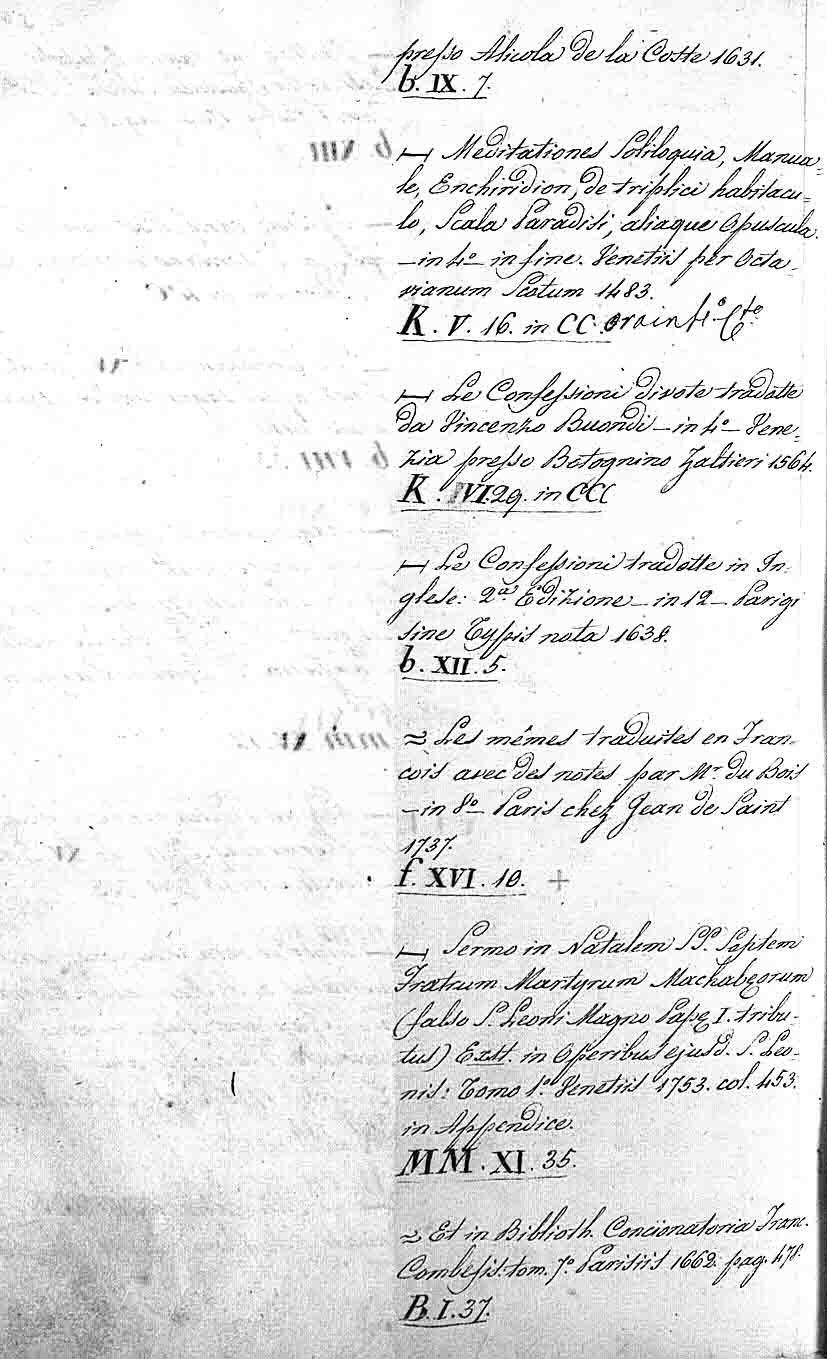 presso Nicola de la Coste 1631.
b. IX. 7.
— Meditationes Soliloquia, Manua-
le, Enchiridion, de triplici habitacu-
lo, Scala Paradisi, aliaque Opuscula.
– in 4.º – in fine. Venetiis per Octa-
vianum Scotum 1483.
K. V. 16. in CC. ora in
— Le Confessioni divote tradotte
da Vincenzo Buondi – in 4.º – Vene-
zia presso Bolognino Zaltieri 1564.
K. VI. 29. in CCC
— Le Confessioni tradotte in In-
glese: 2.ª Edizione – in 12 – Parigi
sine Typis nota 1638.
b. XII. 5.
~ Les mêmes traduites en Fran-
cois avec des notes par M.r du Bois
– in 8.º – Paris chez Jean de Saint
1737.
f. XVI. 10. +
— Sermo in Natalem SS. Septem
Fratrum Martyrum Machabęorum
(falso S. Leoni Magno Papę I. tribu-
tus) Exst. in Operibus ejusd. S. Leo-
nis: Tomo 1.º Venetiis 1753. col. 453.
in Appendice.
MM. XI. 35.
~ Et in Biblioth. Concionatoria Franc.
Combefis: tom. 7.º Parisiis 1662. pag. 478.
B. I. 37.